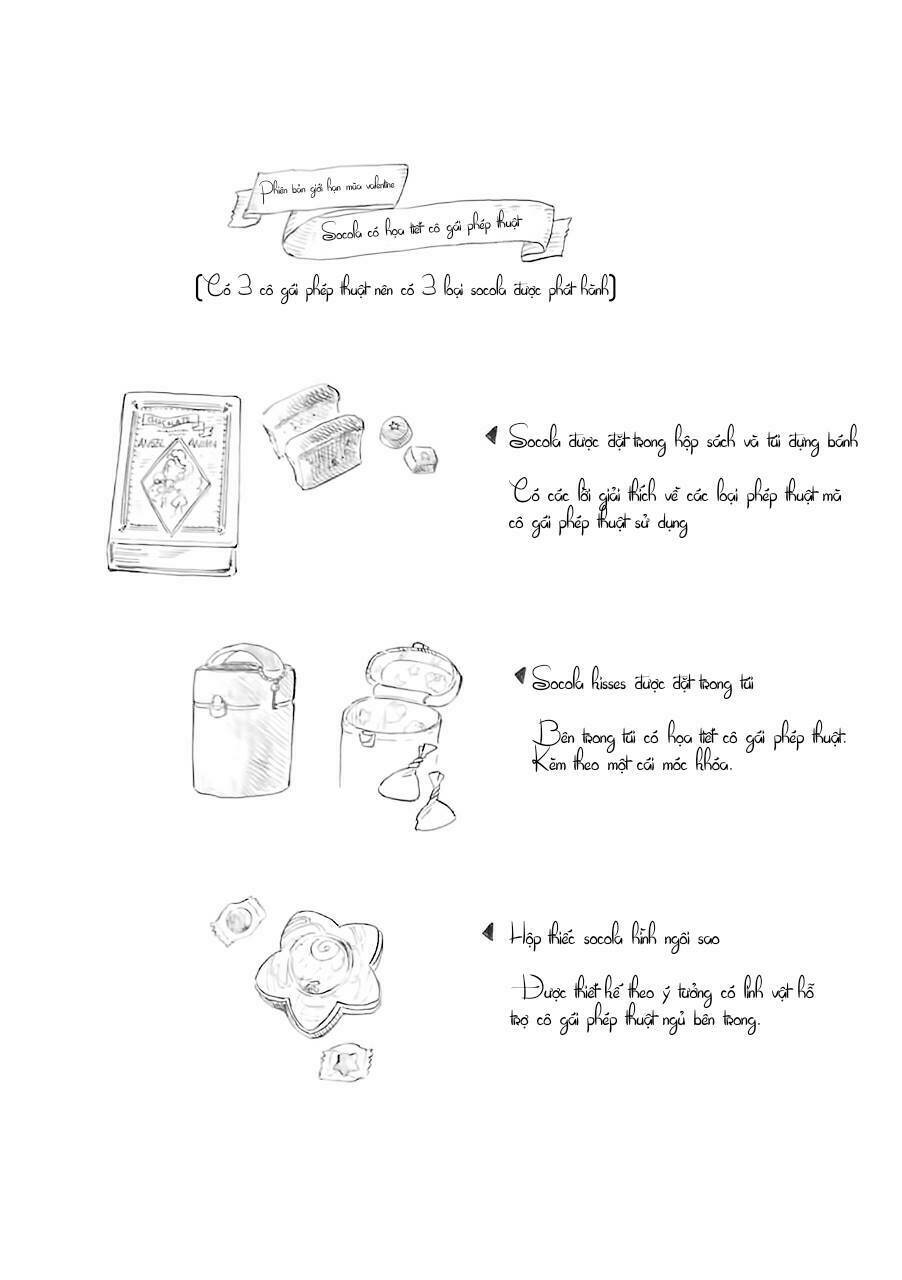 Phiên bản giới hạn mùa valentine
Socola có họa tiết cô gái phép thuật
(Có 3 cô gái phép thuật nên có 3 loại socola được phát hành)
CHOCOLATE
ANGEL ANIMA
Socola được đặt trong hộp sách và túi đựng bánh
Có các lời giải thích về các loại phép thuật mà
cô gái phép thuật sử dụng
Socola kisses được đặt trong túi
Bên trong túi có họa tiết cô gái phép thuật.
Kèm theo một cái móc khóa.
Hộp thiếc socola hình ngôi sao
Được thiết kế theo ý tưởng có linh vật hỗ
trợ cô gái phép thuật ngủ bên trong.